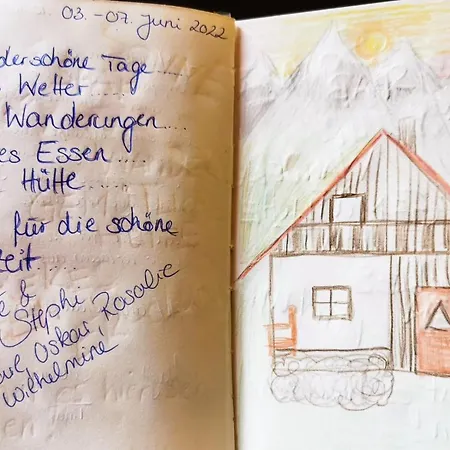 03. - 07. Juni 2022
derschöne Tage ....
Wetter ......
Wanderungen ....
es Essen ....
Hütte ....
für die schöne
zeit .....
&
Stephi
Oskar, Rosalie
Wilhelmine